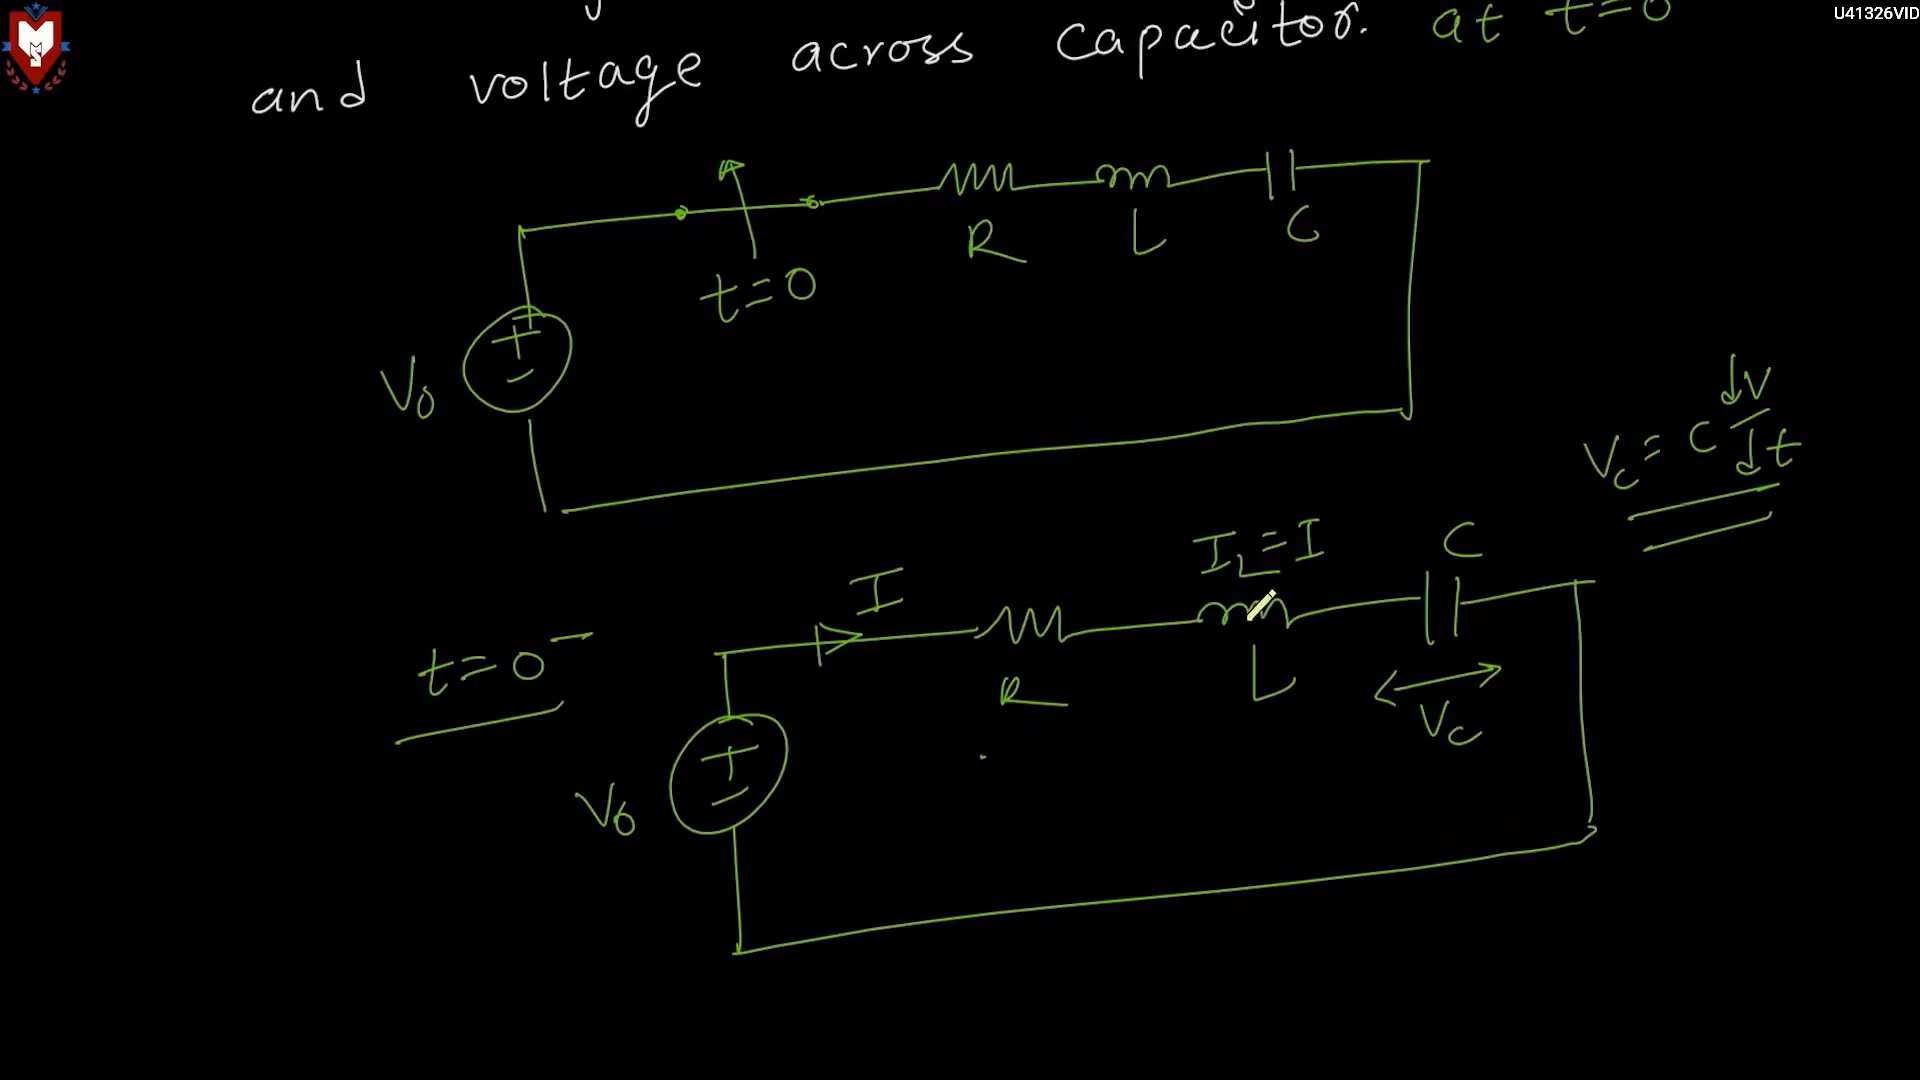 U41326VID
and voltage across capacitor. at t=0
R L C
t=0
V₀
V_c = C dV/dt
I_L = I
C
I
t=0⁻
R L
V_c
V₀